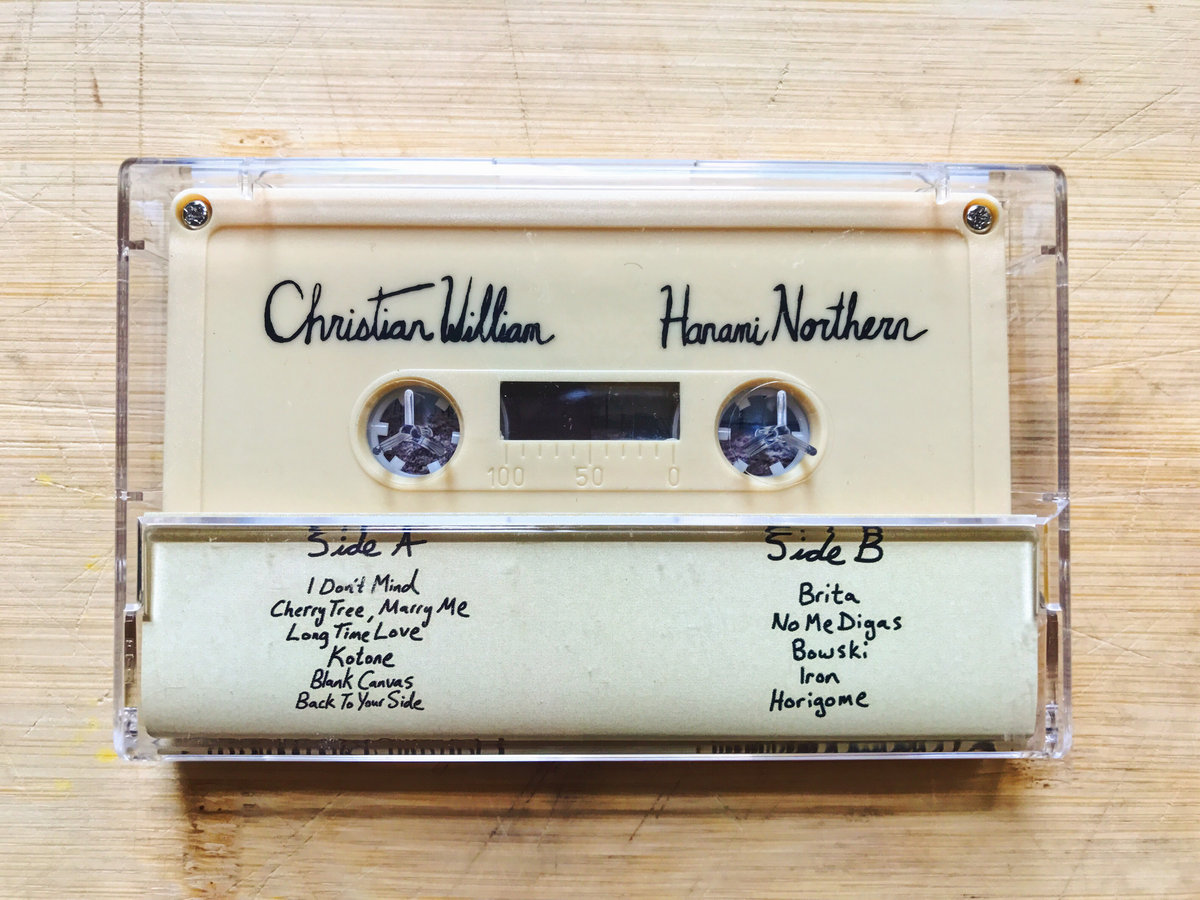 Christian William
Hanami Northern
100 50 0
Side A
I Don't Mind
Cherry Tree, Marry Me
Long Time Love
Kotone
Blank Canvas
Back To Your Side
Side B
Brita
No Me Digas
Bowski
Iron
Horigome